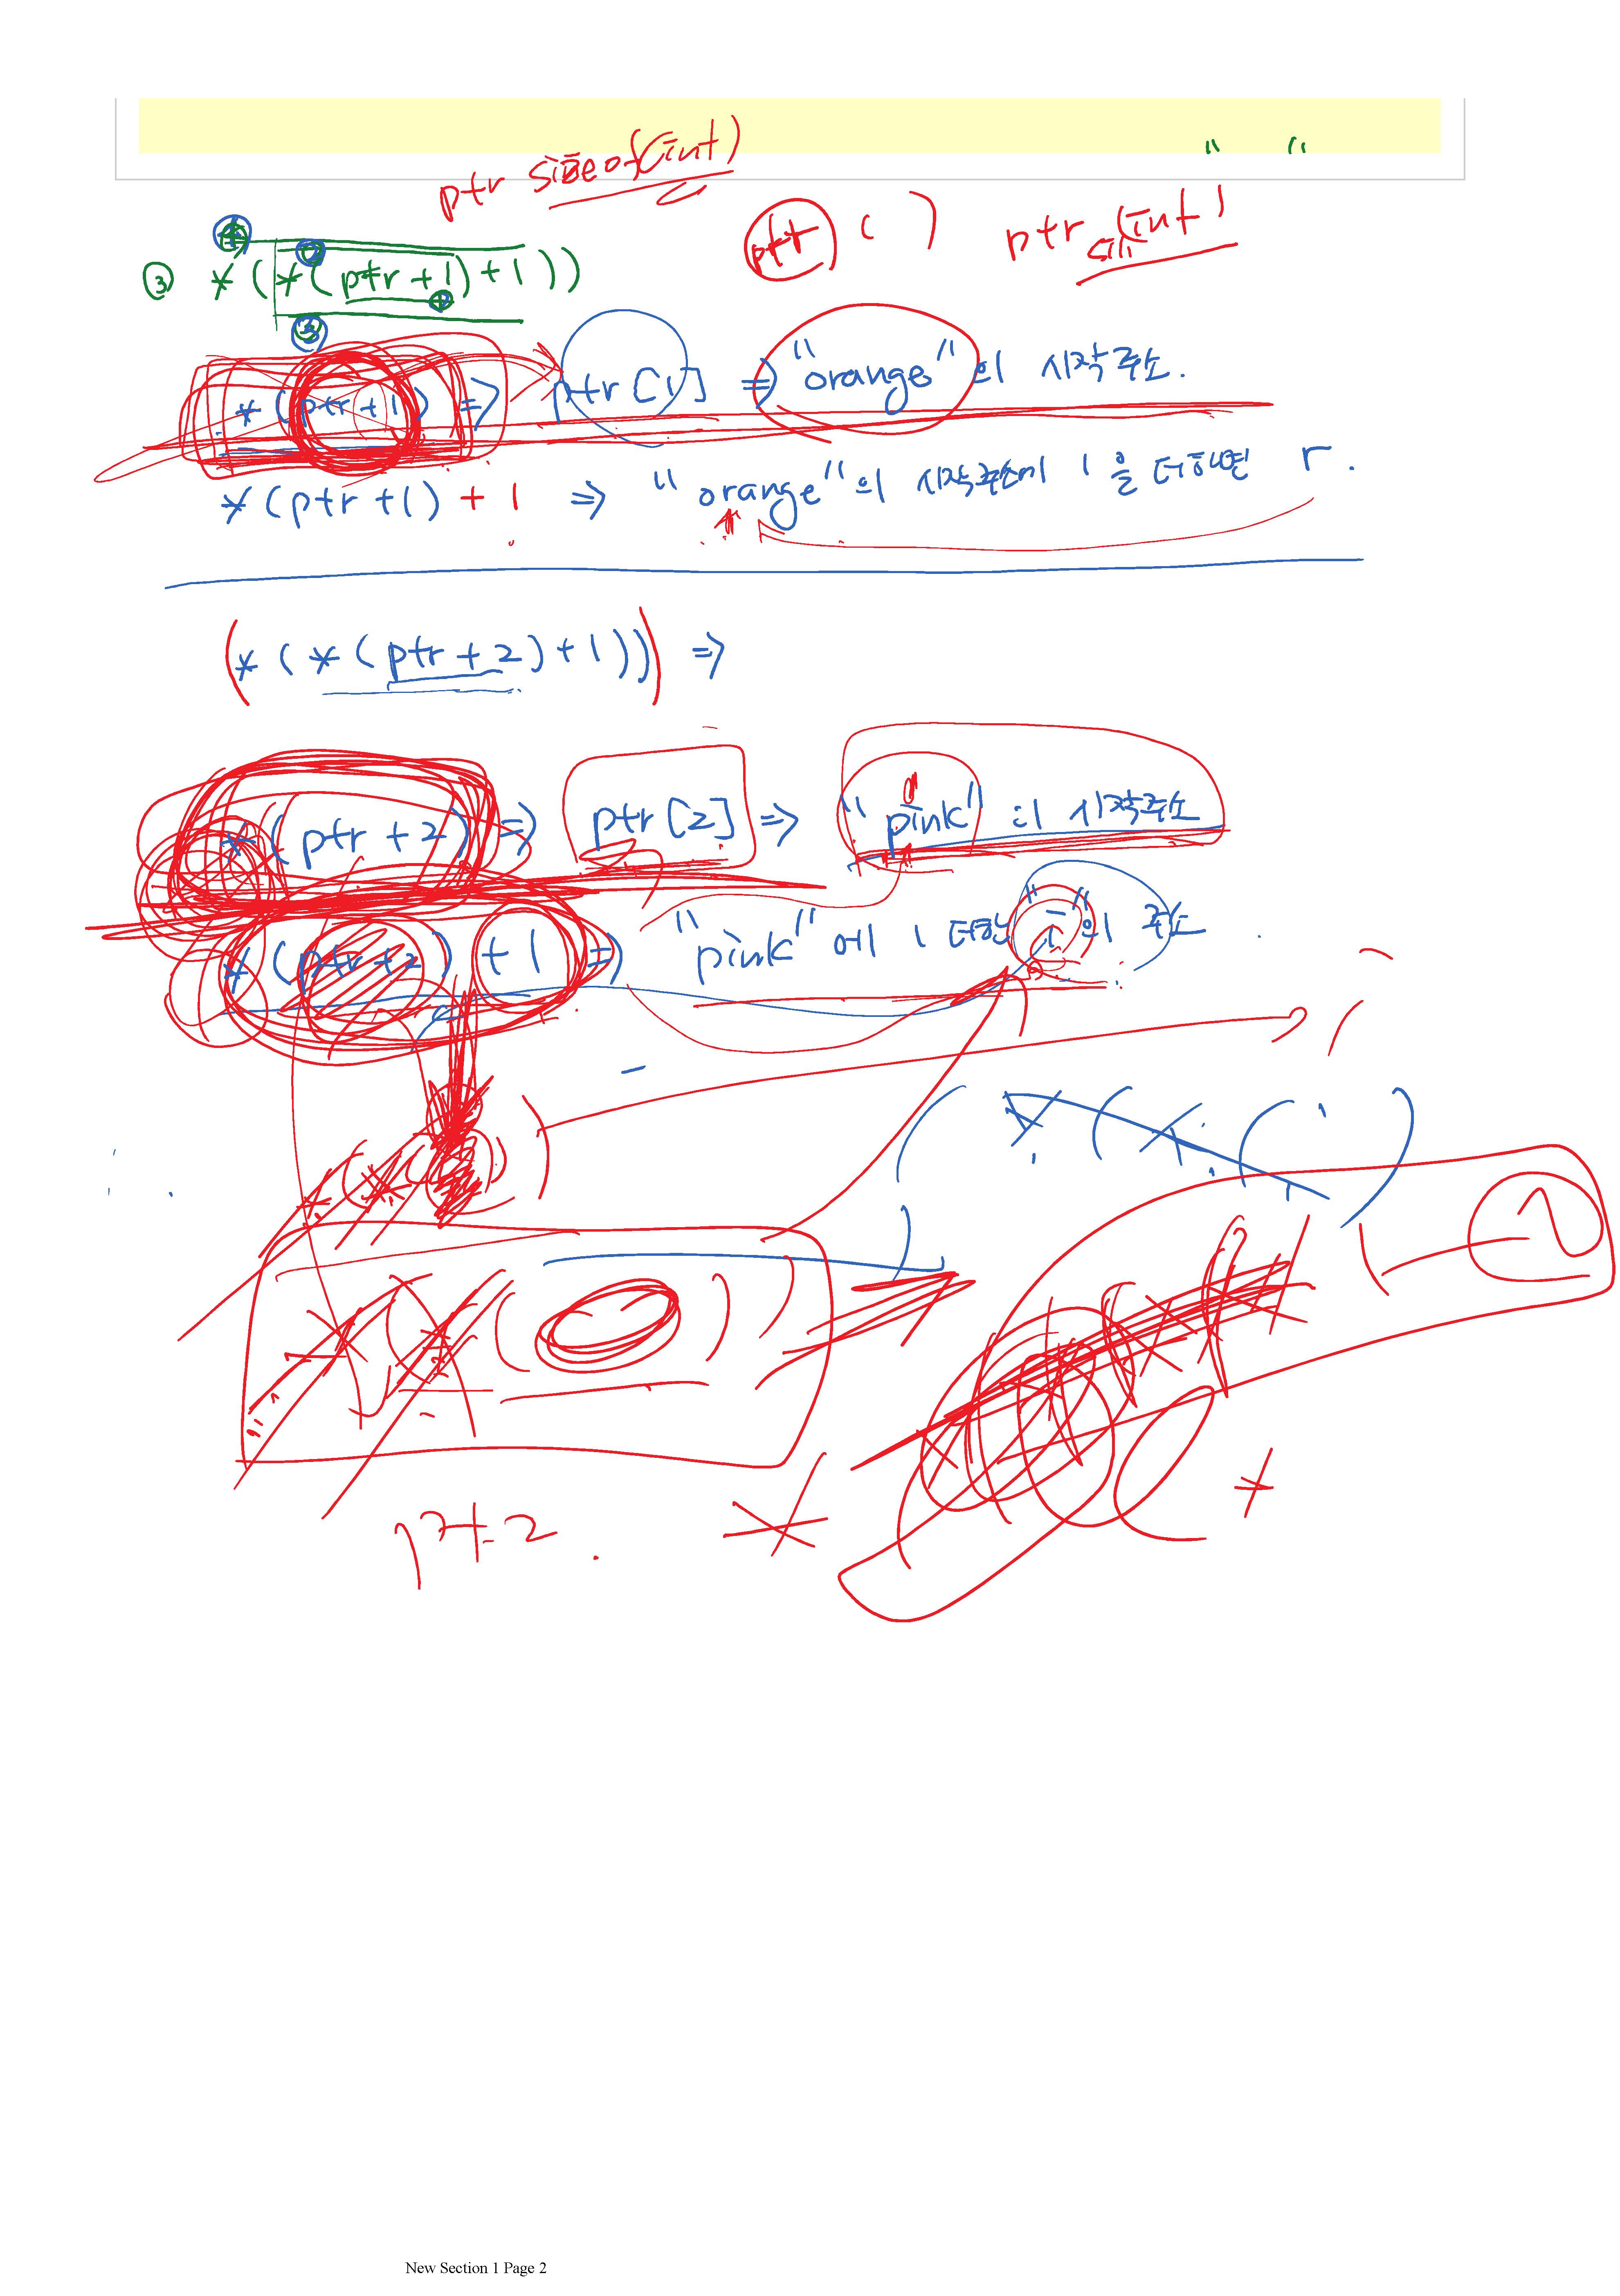 ptr sizeof(int)
ptr ( )
ptr (int)
③ *(*(ptr+1)+1))
*(ptr+1) => ptr[1] => "orange"의 시작주소.
*(ptr+1)+1 => "orange"의 시작주소에 1을 더하면 r.
(*(*(ptr+2)+1)) =>
*(ptr+2) => ptr[2] => "pink"의 시작주소
*(ptr+2)+1 => "pink"에 1 더한 "i"의 주소
New Section 1 Page 2